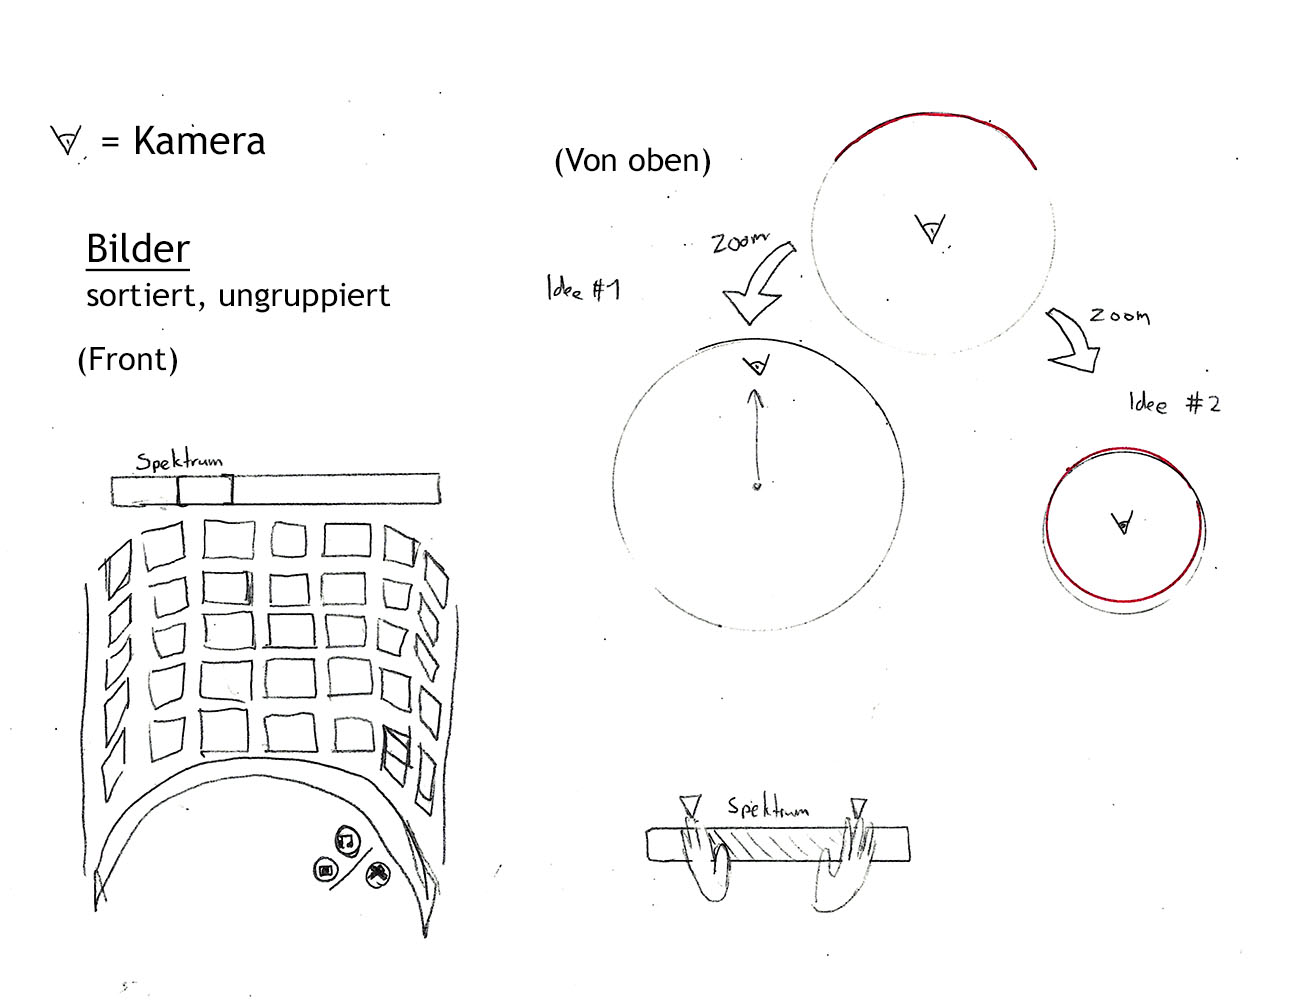 = Kamera
Bilder
sortiert, ungruppiert
(Front)
Spektrum
(Von oben)
Zoom
Idee #1
Zoom
Idee #2
Spektrum